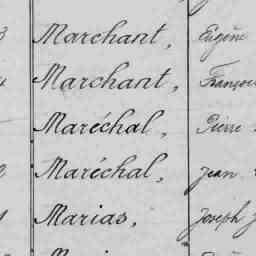 Marchant, Eugène
Marchant, François
Maréchal, Pierre
Maréchal, Jean
Marias, Joseph